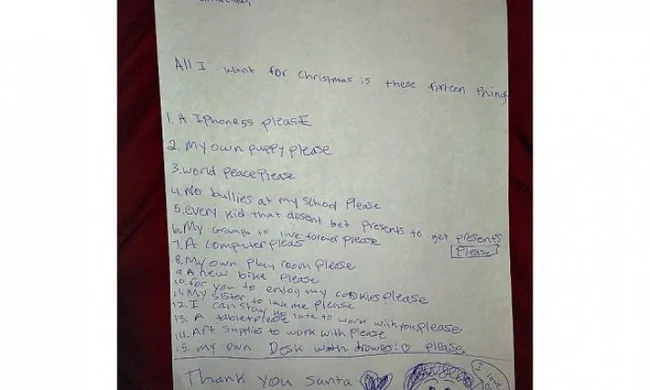 All I want for Christmas is these fifteen thing
1. A Iphone5s pleasE
2. My own puppy please
3. world peace please
4. No bullies at my school Please
5. every kid that dosent get presents to get presents
Please
6. My Gramps to live forever please
7. A computer pleas
8. My own play room please
9. A new bike Please
10. For you to enjoy my cookies please
11. My sister to like me please
12. I can stay up late to work with you please
13. A tablet please
14. Art Supplies to work with Please
15. my own Desk with drawes:♡ please
Thank you santa
I love